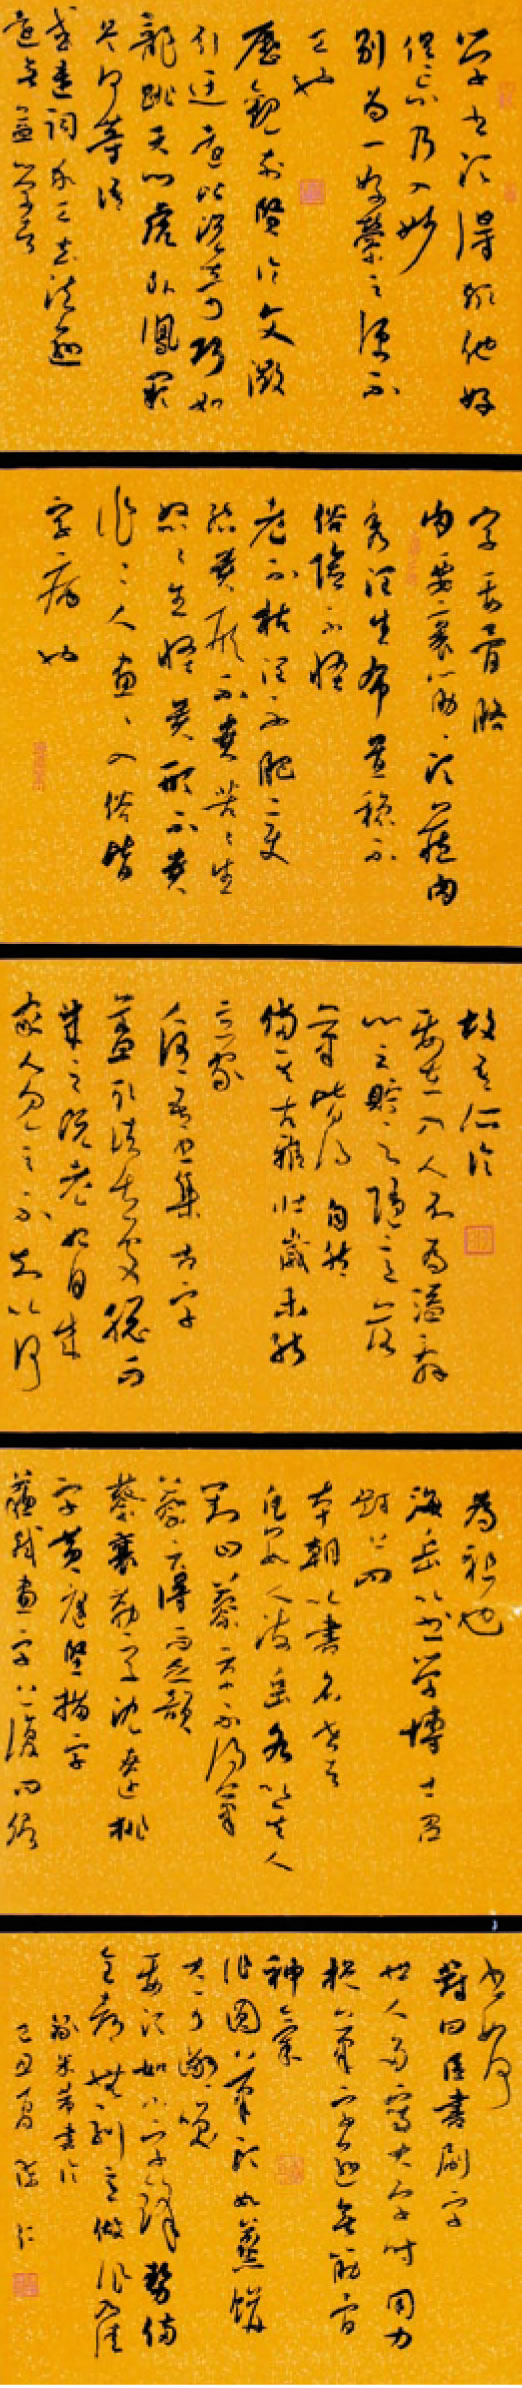 學書須得趣他好
俱忘乃入妙
別為一好縈之便不
工也
歷觀前賢論文徵
引迂遠比況奇巧如
龍跳天門虎臥鳳闕
是何等語
或遣詞求工去法逾
遠無益學者
字要骨格
肉要裹筋筋須藏肉
秀潤生布置穩不
俗險不怪
老不枯潤不肥變
態貴形不貴苦苦生
怒怒生怪貴形不貴
作作入畫畫入俗皆
字病也
故友仁論
要在入人不為溢辭
心之貯之隨意落
筆皆得自然
備其古雅壯歲未能
立家
人謂吾書集古字
蓋取諸長處總而
成之既老始自成
家人見之不知以何
為祖也
海岳以書學博士召
對上問
本朝以書名世者
凡數人海岳各以其人
對曰蔡京不得筆
蔡卞得筆而乏韻
蔡襄勒字沈遼排
字黃庭堅描字
蘇軾畫字上復問卿
書如何
對曰臣書刷字
世人多寫大字時用力
捉筆字愈無筋骨
神氣
作圓筆頭如蒸餅
大可鄙笑
要須如小字鋒勢備
全都無刻意做作乃佳
錄米芾書論
己丑夏